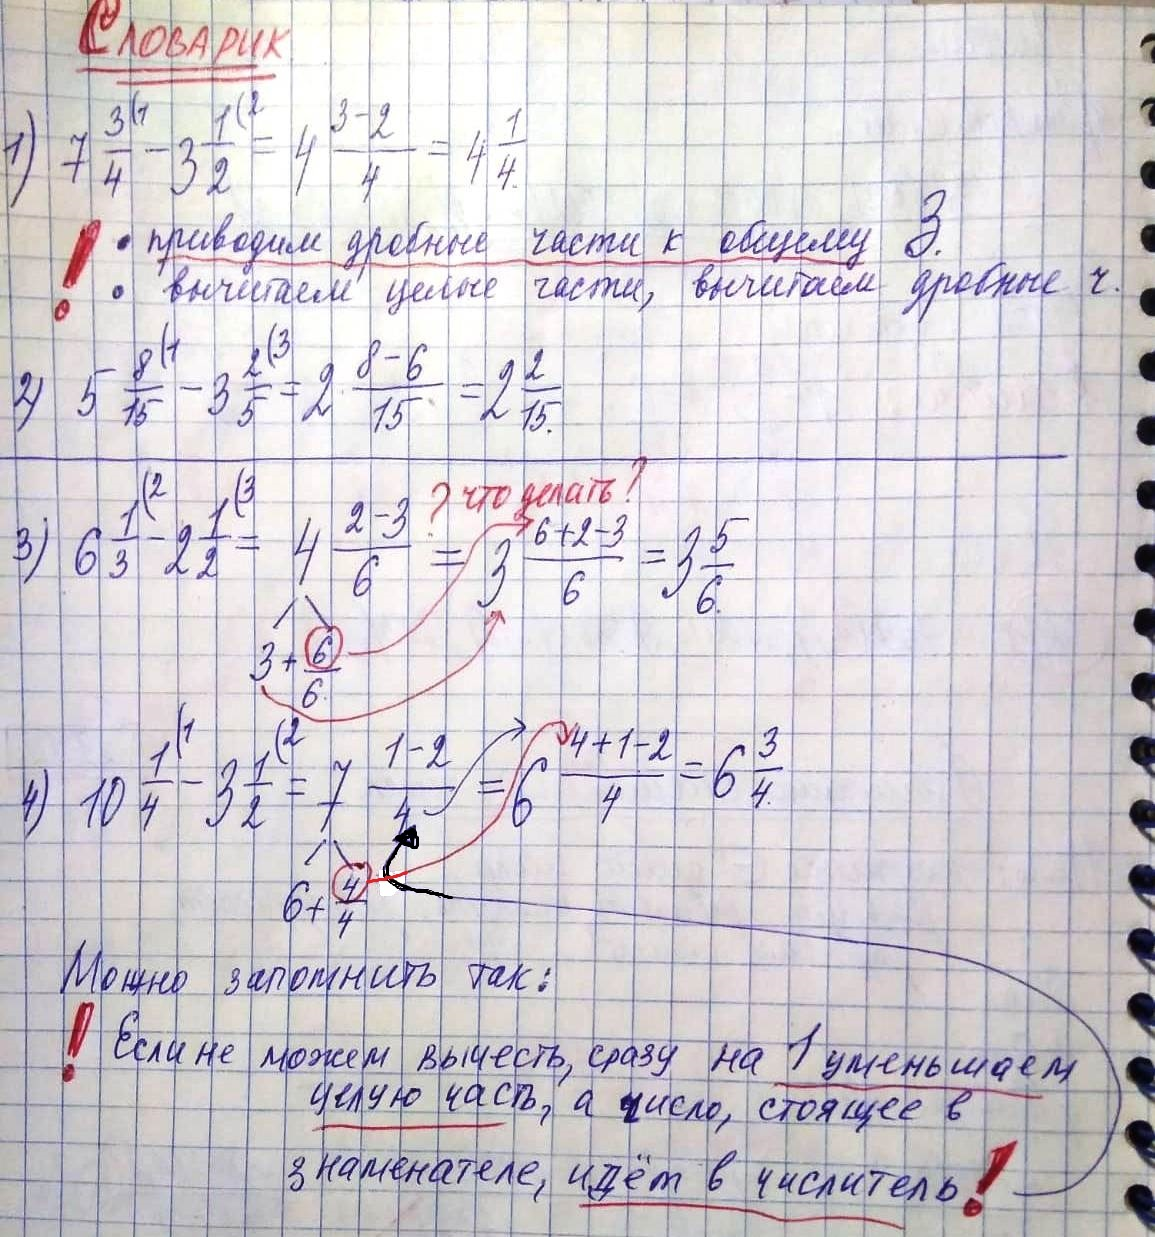 Словарик
1) 7 3/4 (1 - 3 1/2 (2 = 4 3-2/4 = 4 1/4.
! • приводим дробные части к общему З.
• вычитаем целые части, вычитаем дробные ч.
2) 5 8/15 (1 - 3 2/5 (3 = 2 8-6/15 = 2 2/15.
? что делать?
3) 6 1/3 (2 - 2 1/2 (3 = 4 2-3/6 = 3 6+2-3/6 = 3 5/6.
3 + 6/6.
4) 10 1/4 (1 - 3 1/2 (2 = 7 1-2/4 = 6 4+1-2/4 = 6 3/4.
6 + 4/4
Можно запомнить так:
! Если не можем вычесть, сразу на 1 уменьшаем
целую часть, а число, стоящее в
знаменателе, идёт в числитель!